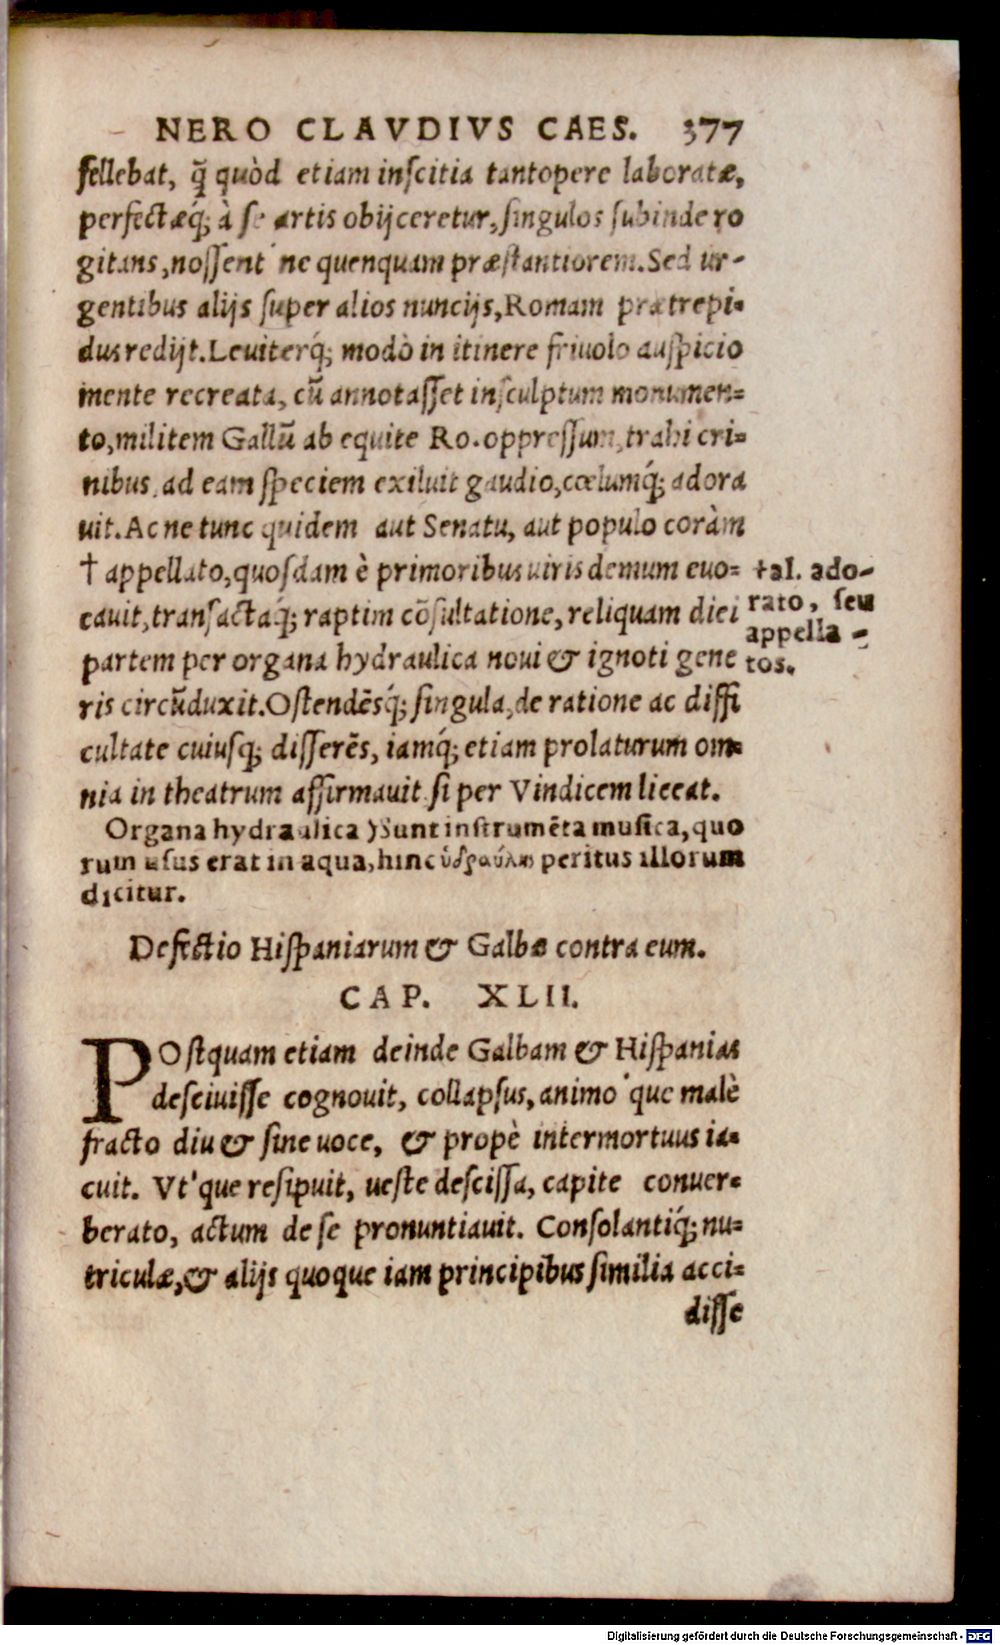 NERO CLAVDIVS CAES. 377
fellebat, q̃ quòd etiam inſcitia tantopere laboratæ,
perfectæq́; à ſe artis obijceretur, ſingulos ſubinde ro
gitans, noſſent'ne quenquam præſtantiorem. Sed ur-
gentibus alijs ſuper alios nuncijs, Romam prætrepi-
dus redijt. Leuiterq́; modò in itinere friuolo auſpicio
mente recreata, cũ annotaſſet inſculptum monumen-
to, militem Gallũ ab equite Ro. oppreſſum, trahi cri-
nibus, ad eam ſpeciem exiluit gaudio, cœlumq́; adora
uit. Ac ne tunc quidem aut Senatu, aut populo coràm
† appellato, quoſdam è primoribus uiris demum euo-
cauit, tranſactaq́; raptim cõſultatione, reliquam diei
partem per organa hydraulica noui & ignoti gene
ris circũduxit. Oſtendẽsq́; ſingula, de ratione ac diffi
cultate cuiuſq; diſſerẽs, iamq́; etiam prolaturum om-
nia in theatrum affirmauit ſi per Vindicem liceat.
†al. ado-
rato, ſeu
appella-
tos.
Organa hydraulica )Sunt inſtrumẽta muſica, quo
rum uſus erat in aqua, hinc ὑδραύλης peritus illorum
dicitur.
Defectio Hiſpaniarum & Galbæ contra eum.
CAP. XLII.
POſtquam etiam deinde Galbam & Hiſpanias
deſciuiſſe cognouit, collapſus, animo'que malè
fracto diu & ſine uoce, & propè intermortuus ia-
cuit. Vt'que reſipuit, ueſte deſciſſa, capite conuer-
berato, actum de ſe pronuntiauit. Conſolantiq́; nu-
triculæ, & alijs quoque iam principibus ſimilia acci-
diſſe
Digitalisierung gefördert durch die Deutsche Forschungsgemeinschaft - DFG